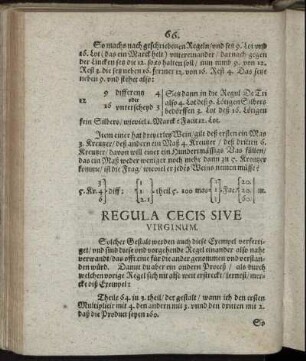 66.
So machs nach geschriebenen Regeln/ vnd setz 9. Lot vnd
16. Lot ( das ein Marck helt ) vntereinander/ darnach gegen
der Lincken setz die 12. so es halten soll/ nim nund 9. von 12.
Rest 3. die setz neben 16. ferner 12. von 16. Rest 4. Das setz
neben 9. vnd stehet also:
9 differentz 4
12 oder
16 vnterscheyd 3
Setz dann in die Regul De Tri
also 4. Lot deß 9. Lötigen Silbers
bedörffen 3. Lot deß 16. Lötigen
fein Silbers/ wieviel 1. Marck: Facit 12. Lot.
Item einer hat dreyerley Wein/ gilt deß ersten ein Maß
3. Kreutzer/ deß andern ein Maß 4. Kreutzer/ deß dritten 6.
Kreutzer/ davon will einer ein Hundertmässigs Vas füllen/
das ein Maß weder weniger noch mehr dann 5. Kreutzer
komme/ ist die Frag/ wieviel er jedes Weins nemen müsse?
REGULA CECIS SIVE
VIRGINUM.
Solcher Gestalt werden auch diese Exempel verfertiget/
vnd sind diese vnd vorgehende Regel einander also nahe
verwandt/ das offt eine für die ander genommen vnd verstanden
würd. Damit du aber ein andern Proceß/ als durch
welchen vorige Regel sich nit also weit erstreckt/ lernest/ mercke
diß Exempel:
Theile 64. in 3. theil/ der gestalt/ wann ich den ersten
Multiplicir mit 4. den andern mit 3. vnnd den dritten mit 2.
daß die Product jeyen 160.
So